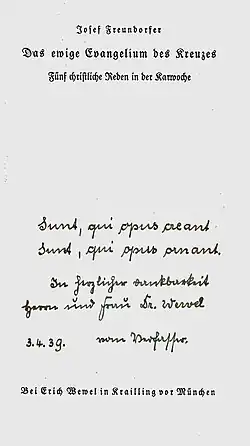 Josef Freundorfer
Das ewige Evangelium des Kreuzes
Fünf christliche Reden in der Karwoche
Sunt, qui opus creant
Sunt, qui opus amant.
In herzlicher Dankbarkeit
Herrn und Frau Dr. Wewel
3.4.39. vom Verfasser.
Bei Erich Wewel in Krailling vor München